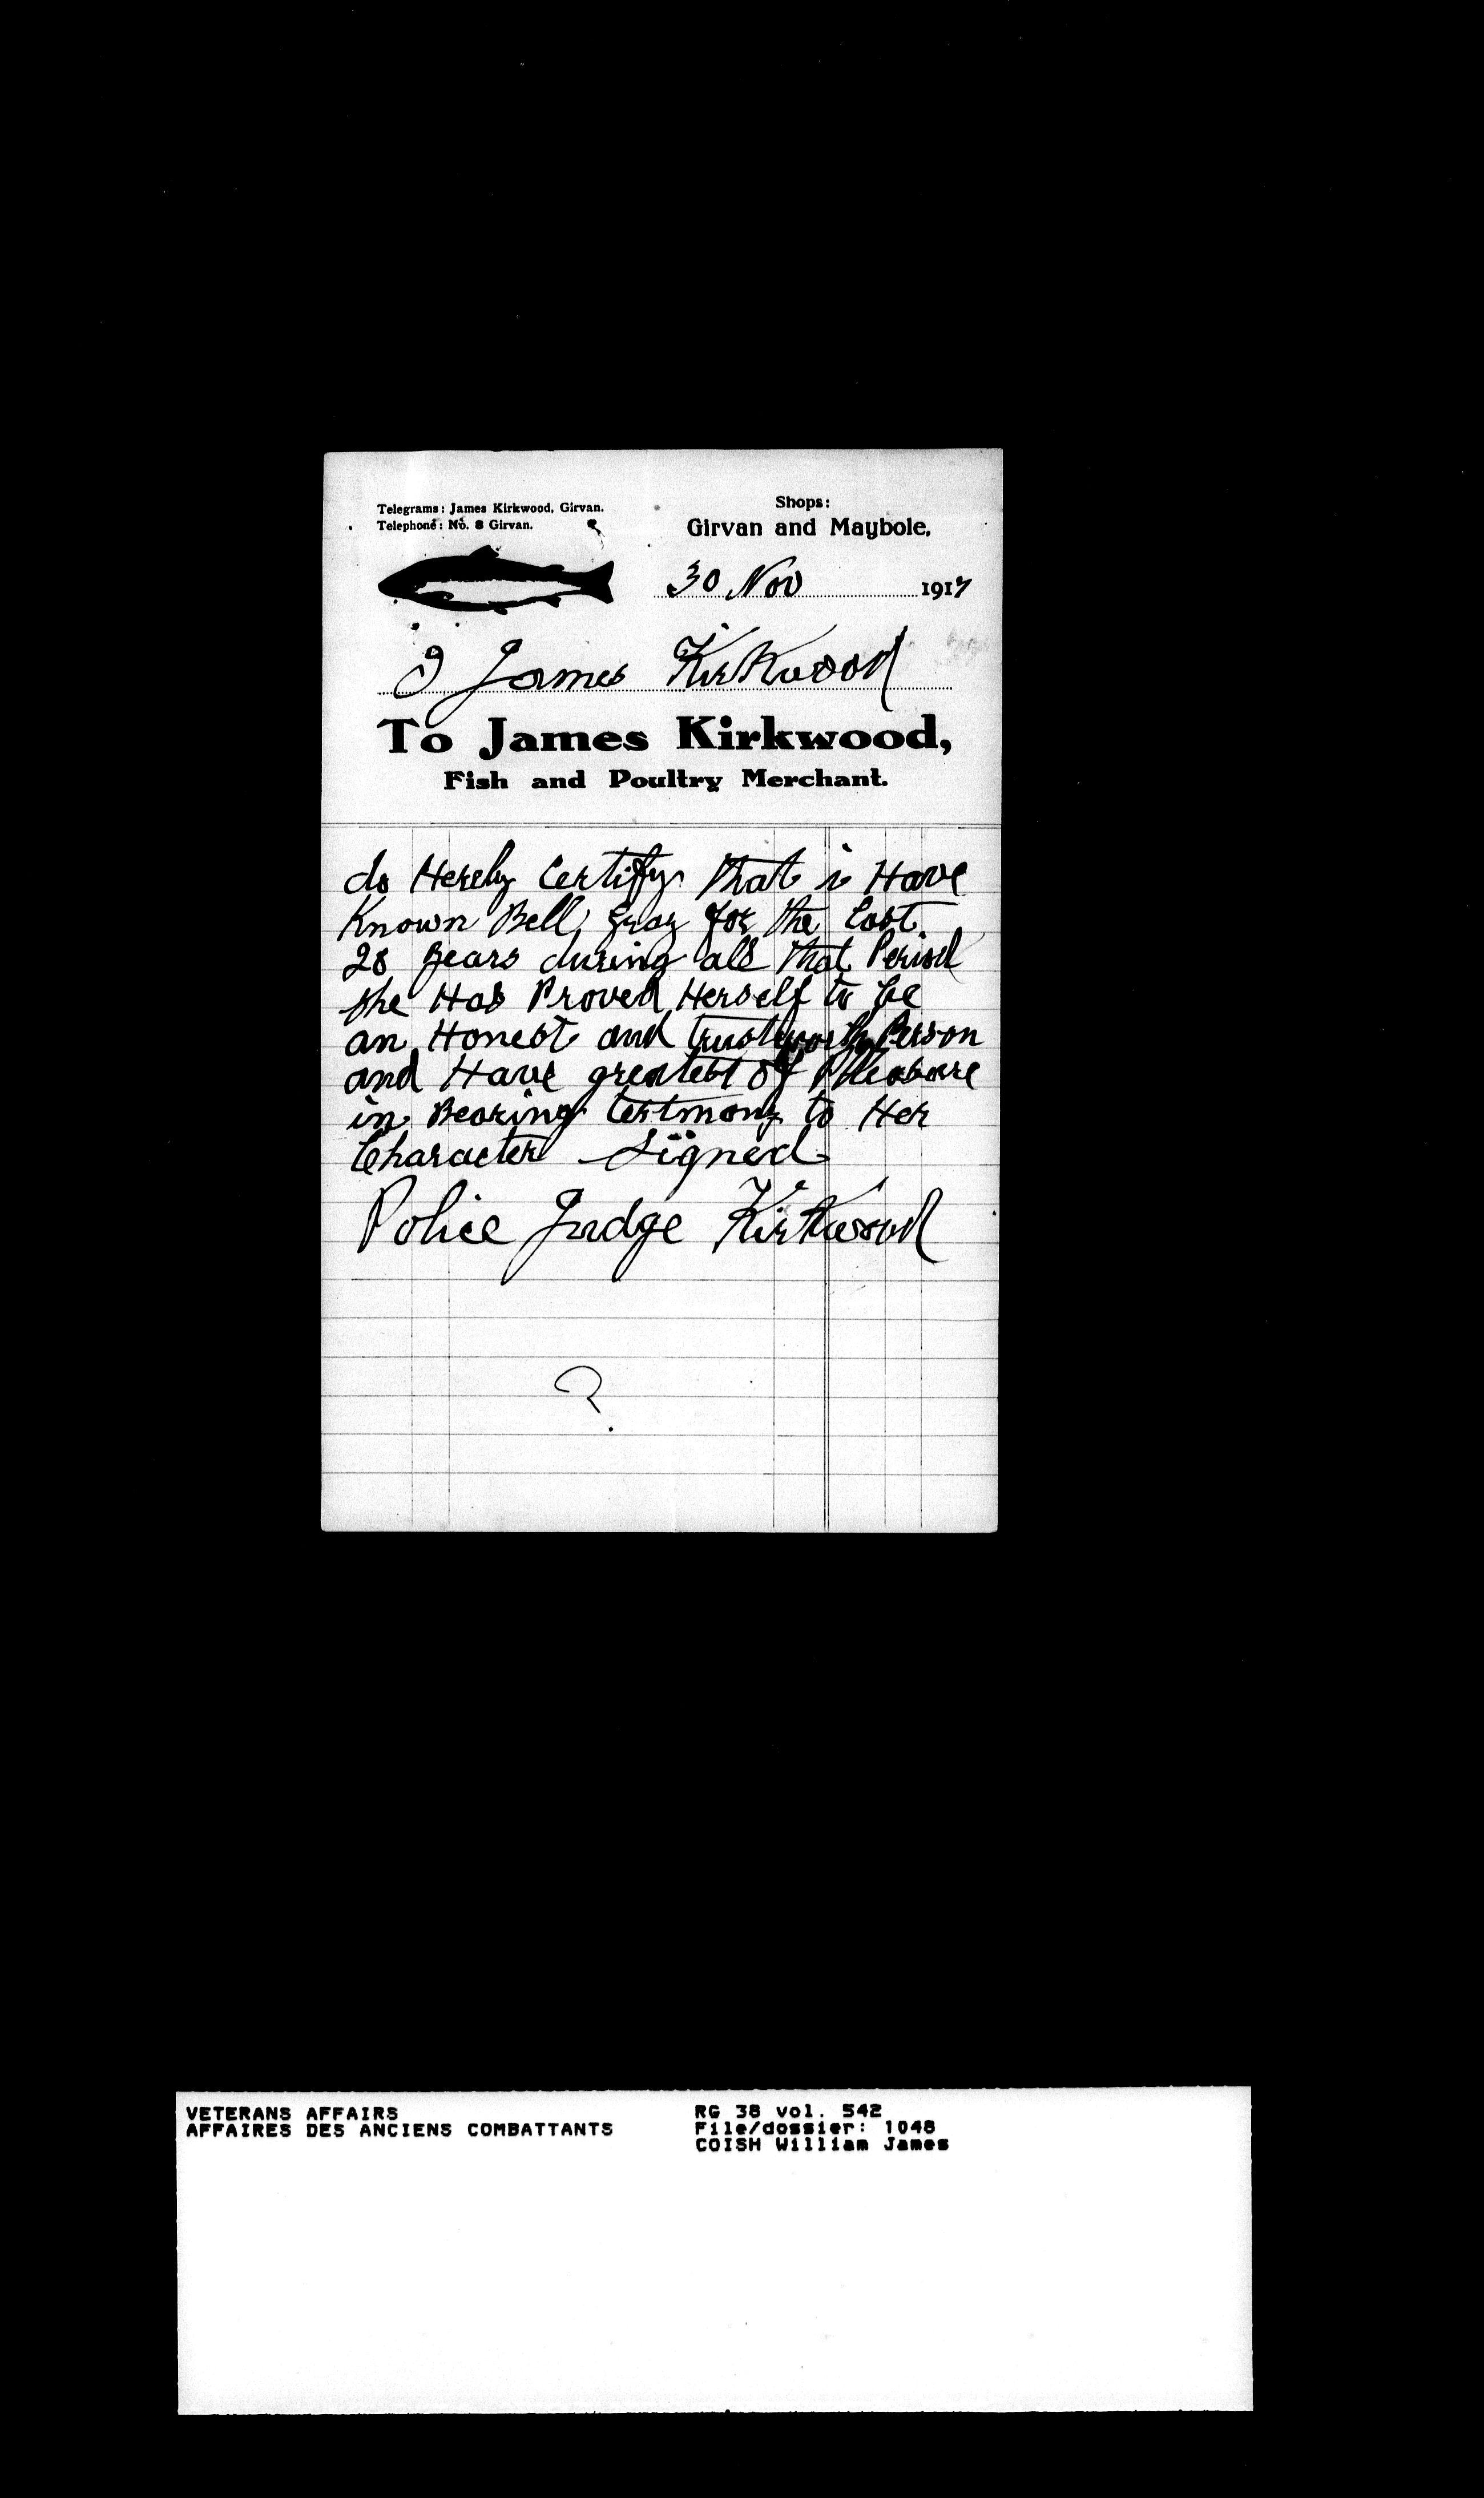 Telegrams: James Kirkwood, Girvan.
Telephone: No. 8 Girvan.
Shops:
Girvan and Maybole,
30 Nov 1917
I James Kirkwood
To James Kirkwood,
Fish and Poultry Merchant.
do Hereby Certify that i Have
Known Bell Gray for the Last
28 years during all that Period
she Has Proved Herself to be
an Honest and trustworthy Person
and Have greatest of Pleasure
in Bearing testmony to Her
Character Signed
Police Judge Kirkwood
?
VETERANS AFFAIRS
AFFAIRES DES ANCIENS COMBATTANTS
RG 38 vol. 542
File/dossier: 1048
COISH William James